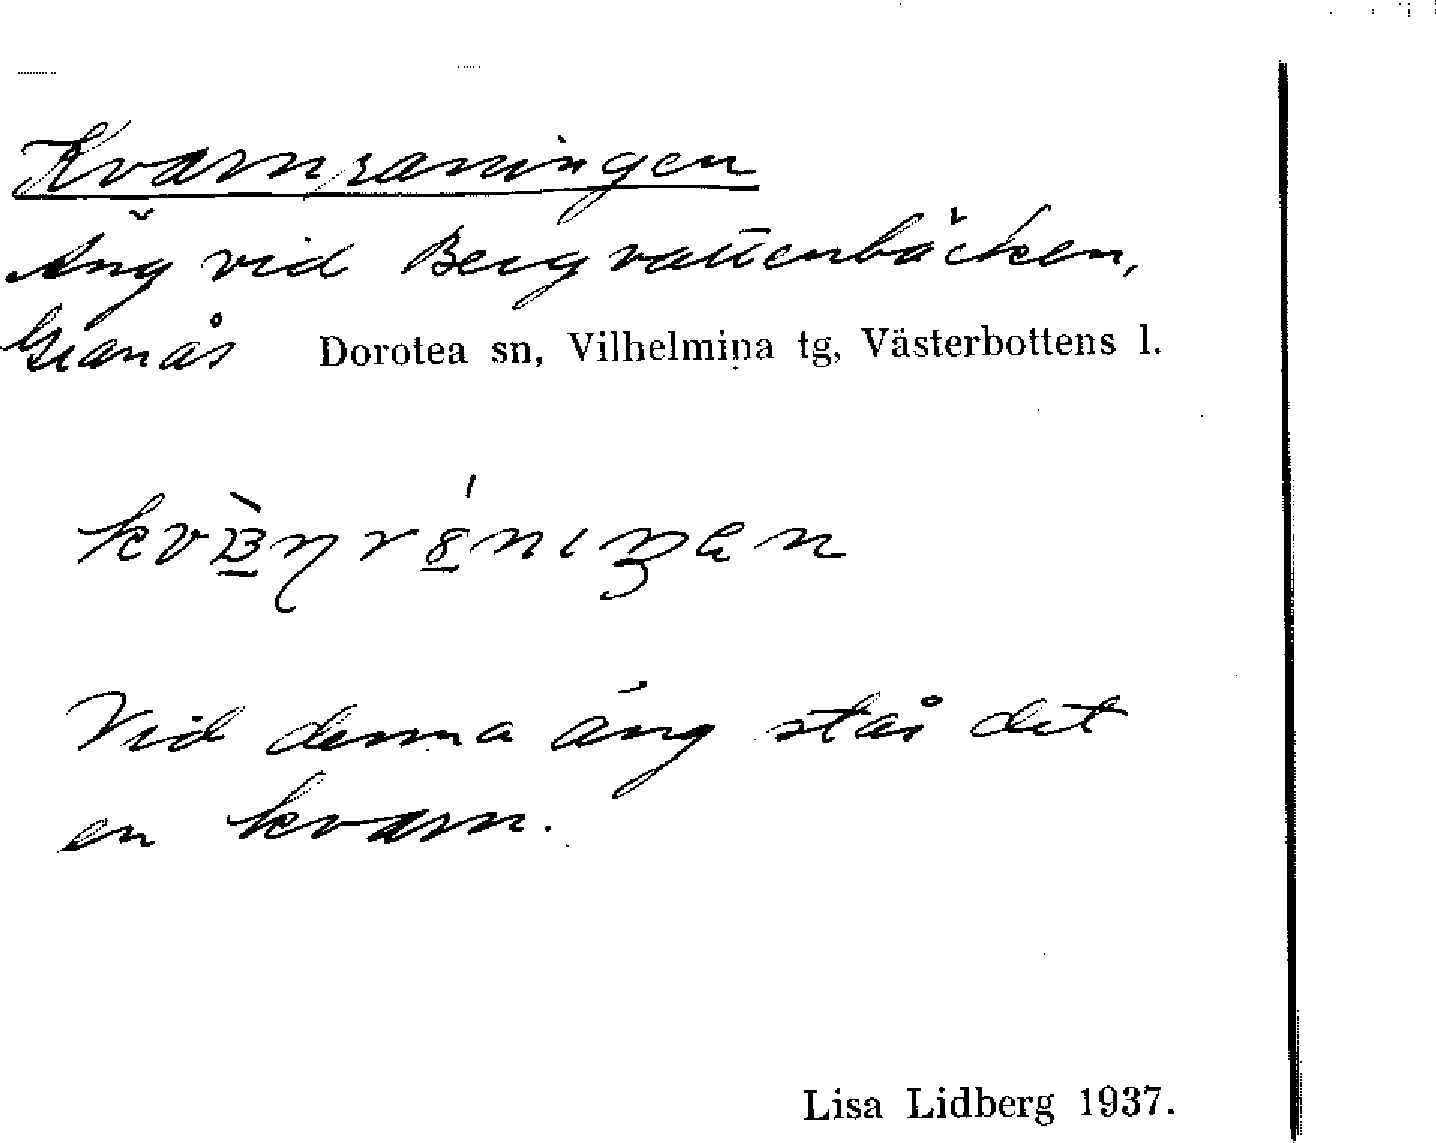 Kvarnraningen
Äng vid Bergvattenbäcken,
Granås Dorotea sn, Vilhelmina tg, Västerbottens l.
Vid denna äng står det
en kvarn.
Lisa Lidberg 1937.